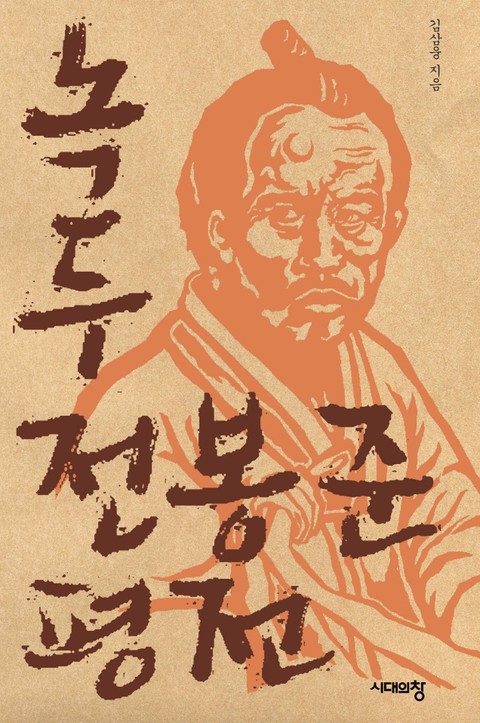 김삼웅 지음
녹두
전봉준
평전
시대의창